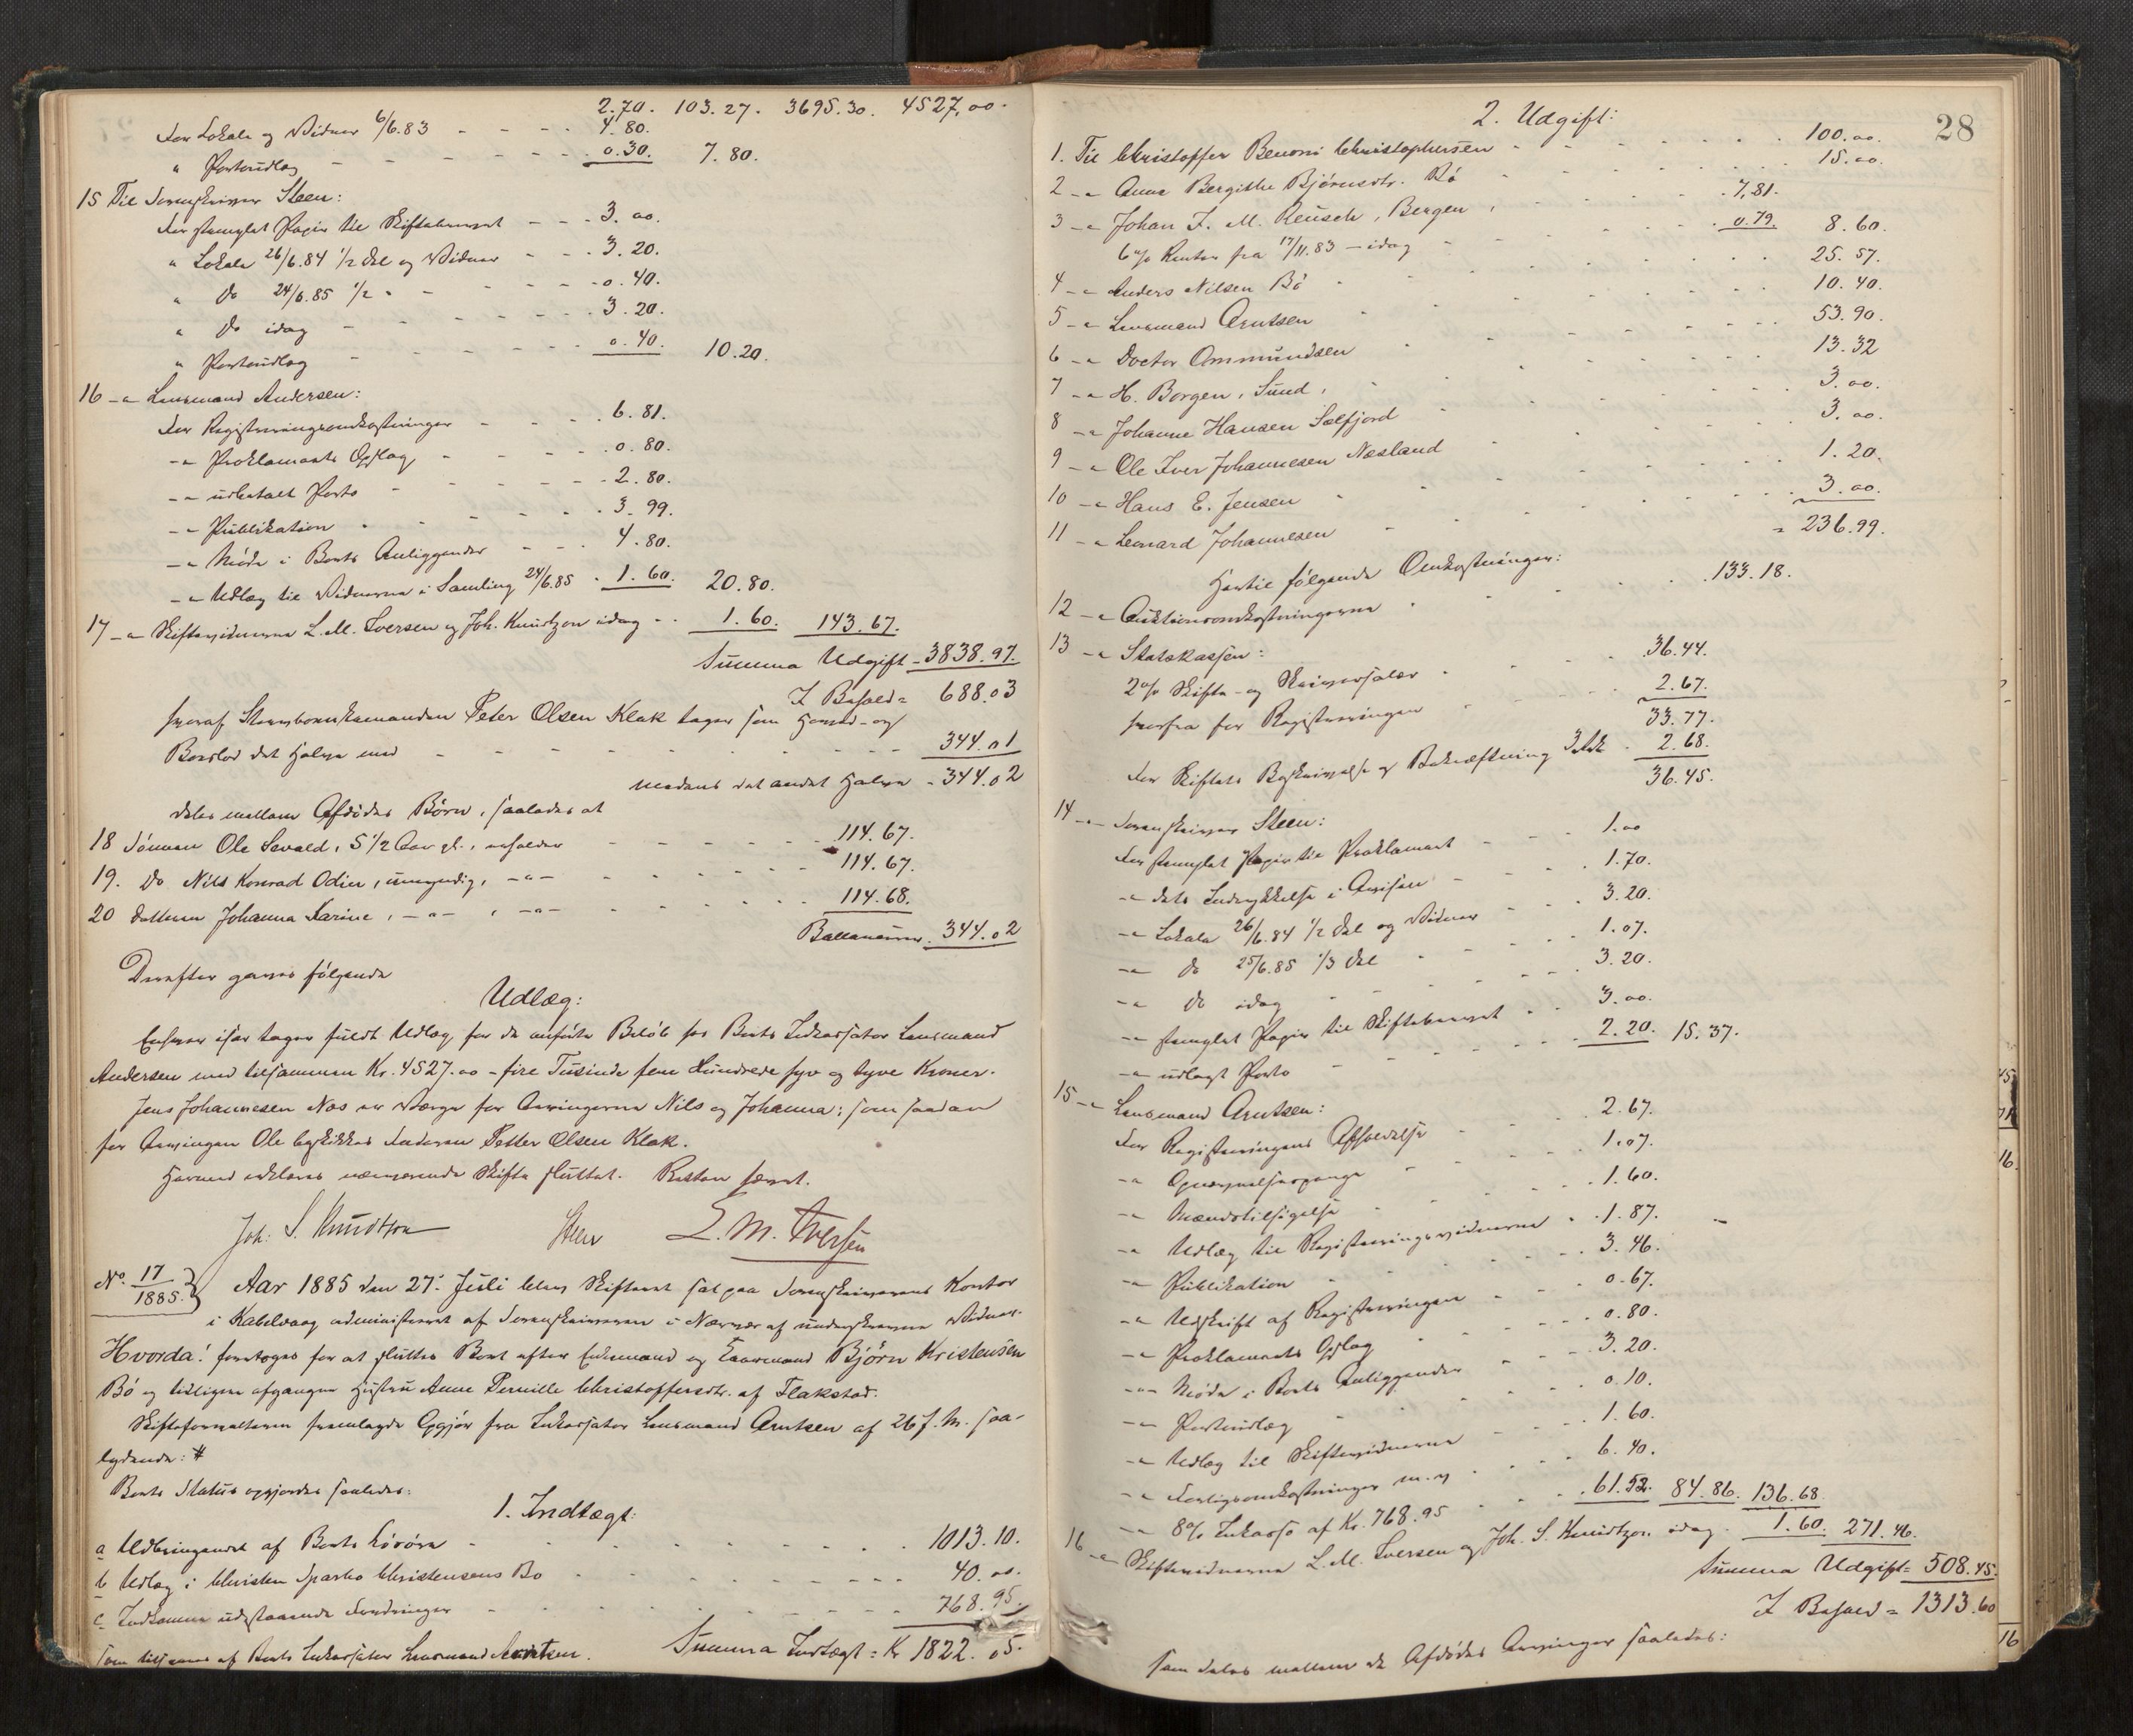 2.70. 103.27. 3695.30. 4527,00.
For Lokale og Vidner 6/6.83 4.80.
" Portoudlæg 0.30. 7.80.
15 Til Sorenskriver Steen:
For stemplet Papir til Skiftebrevet 3.00.
" Lokale 26/6.84 1/2 Del og Vidner 3.20.
" Do 24/6.85 1/2 " 0.40.
" Do idag 3.20.
" Portoudlæg 0.40. 10.20.
16 -"- Lensmand Andersen:
For Registreringsomkostninger 6.81.
-"- Proklamaets Opslag 0.80.
-"- udbetalt Porto 2.80.
-"- Publikation 3.99.
-"- Møde i Boets Anliggender 4.80.
-"- Udlæg til Vidnerne i Samling 24/6.85 1.60. 20.80.
17 -"- Skiftevidnerne L. M. Iversen og Joh. Knudtzon idag 1.60. 143.67.
Summa Udgift 3838.97.
I Behold = 688.03
hvoraf Stervboenkemanden Peter Olsen Klak tager som Hoved- og
Boeslod det Halve med 344.01
medens det andet Halve 344.02
deles mellem Afdødes Børn, saaledes at
18 Sønnen Ole Sevald, 5 1/2 Aar gl., erholder 114.67.
19. Do Nils Konrad Odin, umyndig, -"- 114.67.
20 Datteren Johanna Karine, -"-, -"- 114.68.
Ballancerer 344.02
Derefter gaves følgende
Udlæg:
Enhver især tager fuldt Udlæg for de anførte Beløb hos Boets Inkassator Lensmand
Andersen med tilsammen Kr. 4527.00 - fire Tusinde fem Hundrede syv og tyve Kroner.
Jens Johannesen Næs er Værge for Arvingerne Nils og Johanna; som saadan
for Arvingen Ole beskikkes Faderen Petter Olsen Klak.
Hermed erklæres nærværende Skifte sluttet. Retten hævet.
Joh. S. Knudtzon Steen L. M. Iversen
No. 17/1885. Aar 1885 den 27. Juli blev Skifteret sat paa Sorenskriverens Kontor
i Kabelvaag administreret af Sorenskriveren i Nærvær af underskrevne Vidner.
Hvorda! foretoges for at slutte Boet efter Enkemand og Gaarmand Björn Kristensen
Bö og tidligere afgangne Hustru Anne Pernille Christoffersdtr. af Flakstad.
Skifteforvalteren fremlagde Opgjör fra Inkassator Lensmand Arntsen af 26 f. M. saa-
lydende: #
Boets Status opgjordes saaledes:
1. Indtægt:
a Udbringendet af Boets Løsøre 1013.10.
b Udlæg i Christen Sparbo Christensens Bo 40.00.
c Indkomne udestaaende Fordringer 768.95.
Som tilsvares af Boets Inkassator Lensmand Arntsen. Summa Indtægt = Kr 1822.05.
28
2. Udgift:
1. Til Christoffer Benoni Christophersen 100.00.
2 -"- Anne Bergithe Björnsdtr. Bö 15.00.
3 -"- Johan F. M. Reusch, Bergen, 7,81.
6 % Renter fra 17/11.83 - idag 0.79. 8.60.
4 -"- Anders Nilsen Bö 25.57.
5 -"- Lensmand Arntsen 10.40.
6 -"- Doctor Ommundsen 53.90.
7 -"- H. Borgen, Sund, 13.32
8 -"- Johanne Hansen Selfjord 3.00.
9 -"- Ole Iver Johannesen Næsland 3.00.
10 -"- Hans E. Jensen 1.20.
11 -"- Leonard Johannesen 3.00.
= 236.99.
Hertil følgende Omkostninger:
12 -"- Auktionsomkostningerne 133.18.
13 -"- Statskassen:
2 % Skifte- og Skriversalær 36.44.
herfra for Registreringen 2.67.
33.77.
For Skiftets Beskrivelse og Bekræftning 2.68.
36.45.
14 -"- Sorenskriver Steen:
For stemplet Papir til Proklamaet 1.00
-"- dets Indrykkelse i Avisen 1.70.
-"- Lokale 26/6.84 1/2 Del og Vidner 3.20.
-"- Do 25/6.85 1/3 Del 1.07.
-"- Do idag 3.20.
-"- stemplet Papir til Skiftebrevet 3.00.
-"- udlagt Porto 2.20. 15.37.
15 -"- Lensmand Arntsen:
For Registreringens Afholdelse 2.67.
-"- 1.07.
-"- Mændstilsigelse 1.60.
-"- Udlæg til Registreringsvidnerne 1.87.
-"- Publikation 3.46.
-"- Udskrift af Registreringen 0.67.
-"- Proklamaets Opslag 0.80.
-"- Møde i Boets Anliggender 3.20.
-"- Portoudlæg 0.10.
-"- Udlæg til Skiftevidnerne 1.60.
-"- Forligsomkostninger m. v. 6.40.
-"- 8 % Inkasso af Kr. 768.95 61.52. 84.86. 136.68.
16 -"- Skiftevidnerne L. M. Iversen og Joh. S. Knudtzon idag 1.60. 271.46.
Summa Udgift = 508.45.
I Behold = 1313.60
som deles mellem de Afdødes Arvinger saaledes:
16
16